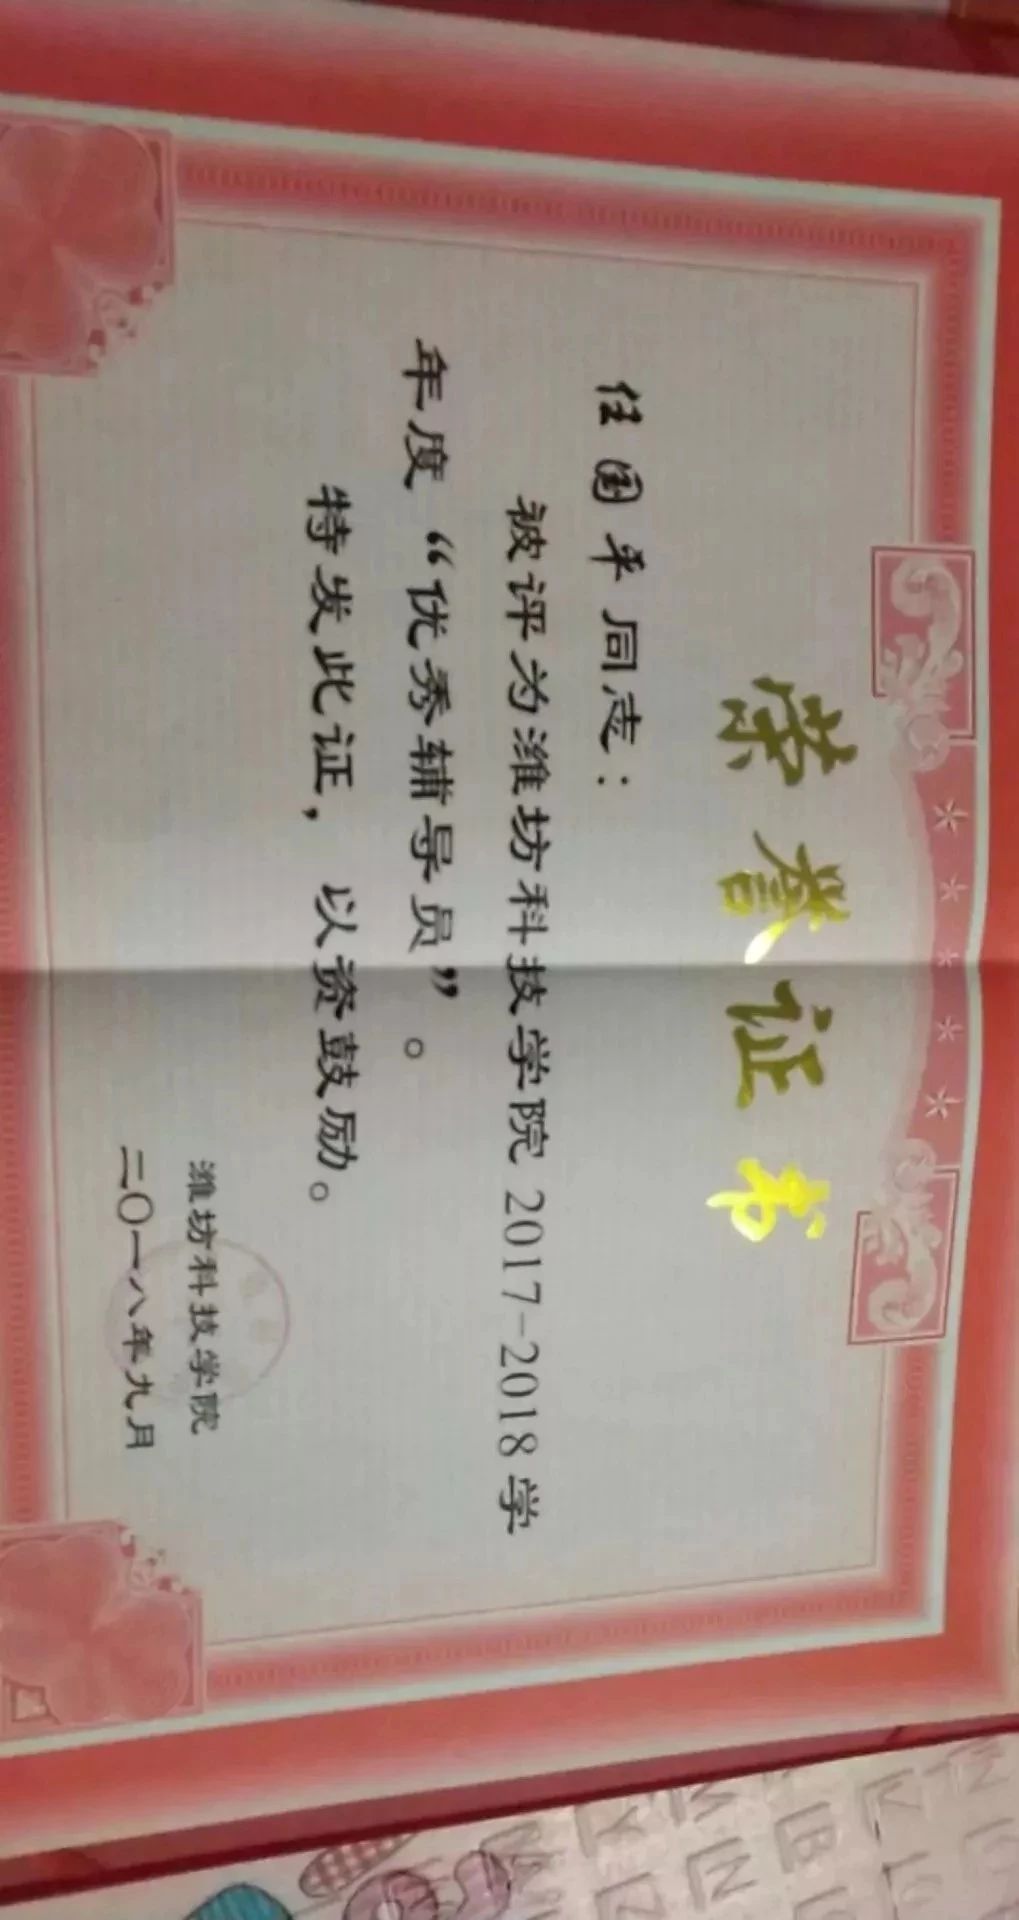 荣誉证书
任国平同志：
被评为潍坊科技学院2017-2018学
年度“优秀辅导员”。
特发此证，以资鼓励。
潍坊科技学院
二〇一八年九月